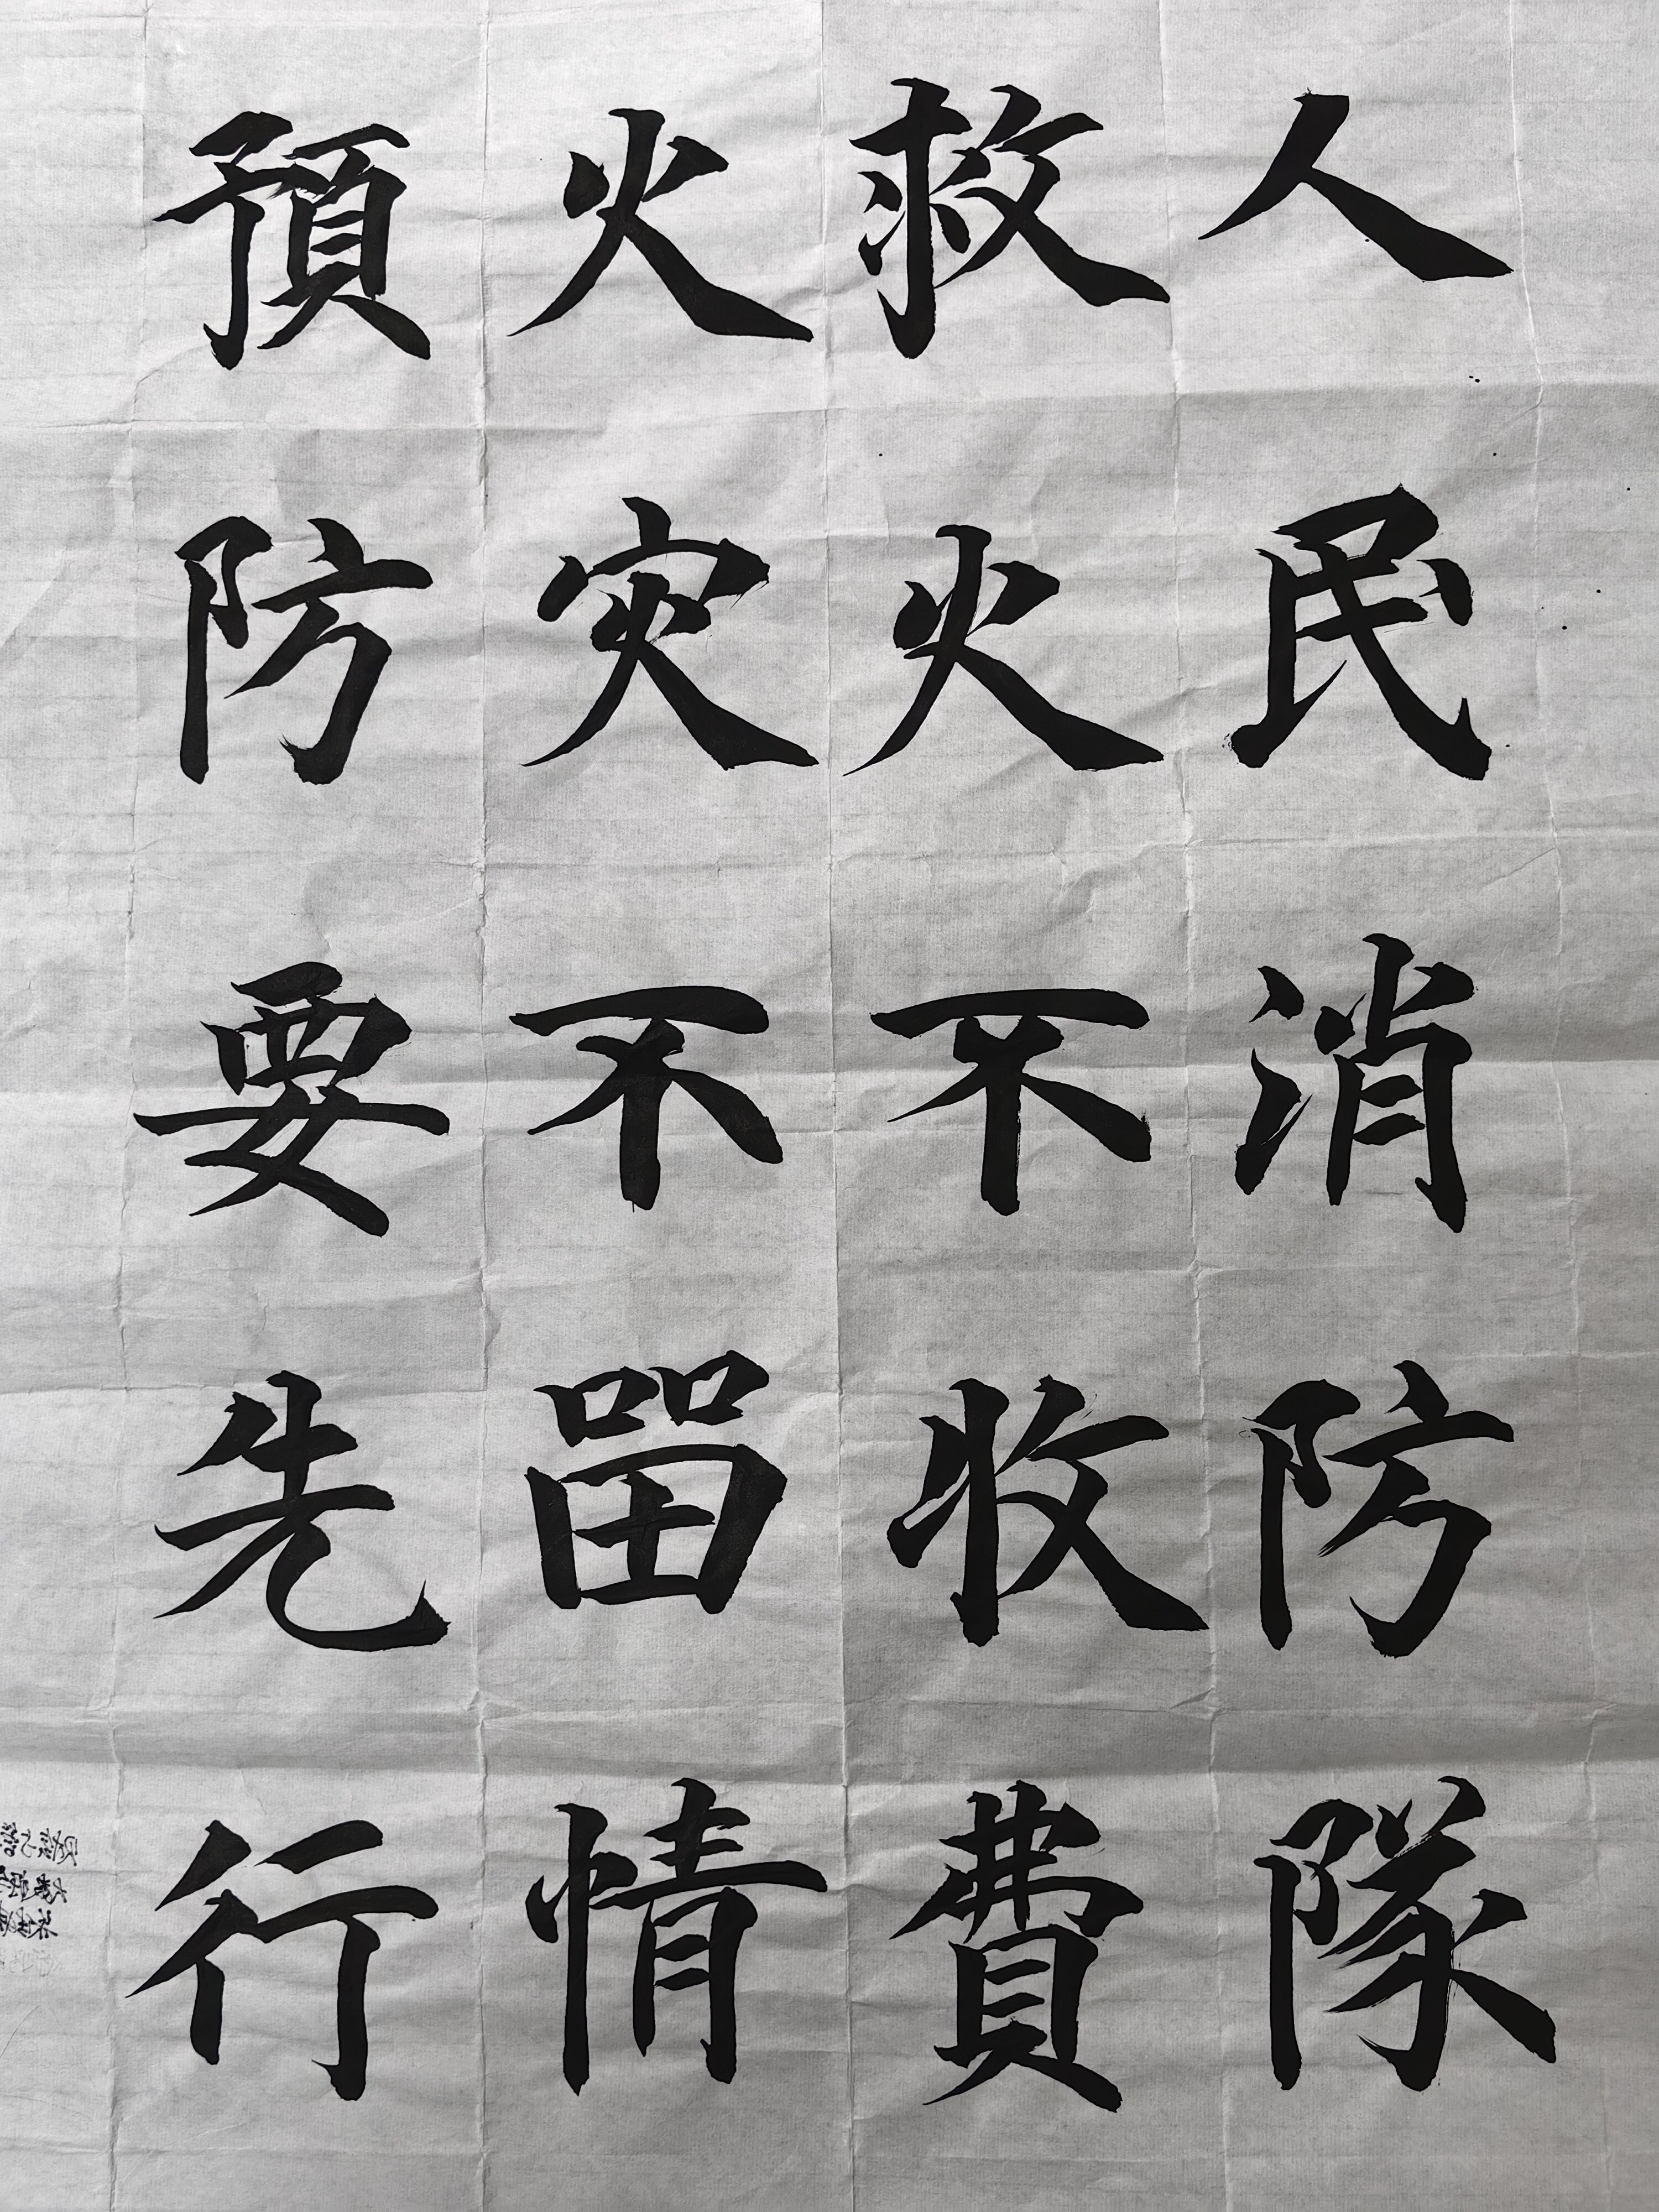 人民消防隊
救火不收費
火灾不畱情
預防要先行